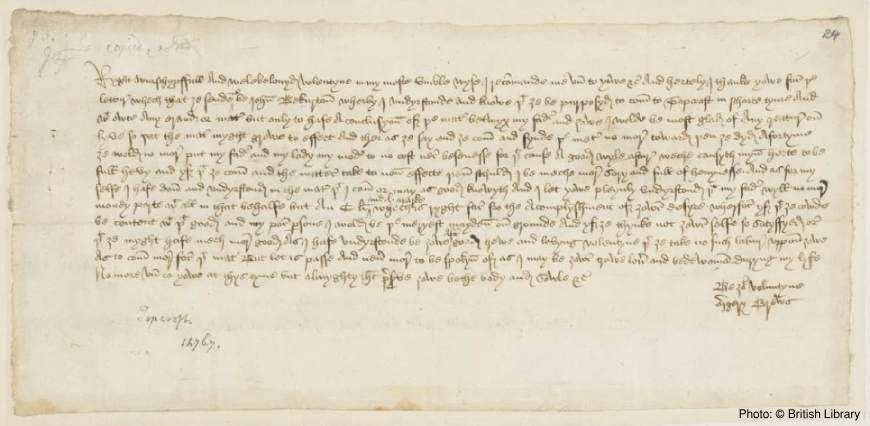 Ryght wurschypffull and welebelouyd Volentyne in my moste vmble wyse I recommande me vn to yowe &c And hertely I thanke yowe for þe
lettur whech that ȝe sende me be John Bekurton wherby I vndyrstonde and knowe þt ȝe be purposyd to com to Topcroft in schorte tyme And
wt owte any erand or mater but only to hafe a conclusyon of þe mater betwyx my fadr and yowe I wolde be most glad of any creatur on
lyve so þat the mater myght growe to effect And ther as ȝe say and ȝe com and fynde þe mater no mor toward þen ȝe dyd afortyme
ȝe wold no mor put my fadr and my lady my modr to no cost ner besenesse for þt cause A good wyle aftur weche causyth myn herte to be
full hevy And yf þt ȝe com and the mater take to non effecte þen schuld I be meche mor sory and full of heuynesse And as for my
selfe I hafe don and vndyrstond in the mater þt I can or may as good knowyth And I let yowe pleynly vndyrstond þt my fadr wyll no mor
money parte wt all in that behalfe but An C li and l marke whech is ryght far fro the Acomplyshment of yowr desyre Wherfor yf þt ȝe cowde
be content wt þt good and my por persone I wold be þe meryest mayden on grounde And yf ȝe thynke not yowr selfe so satysfyed or
þt ȝe myght hafe mech mor good As I hafe vndyrstonde be yowe afor good trewe and lovyng Volentyne þt ȝe take no such labur vppon yowe
As to com mor for þt mater But let is passe And never mor to be spokyn of as I may be yowr trewe lover and bedewoman duryng my lyfe
No more vn to yowe at thys tyme but almyghty Jhs preserve yowe bothe body and Sawle &c
Be yowr Voluntyne
Mergery Brews
Topcroft.
1476/7.
24
Photo: © British Library